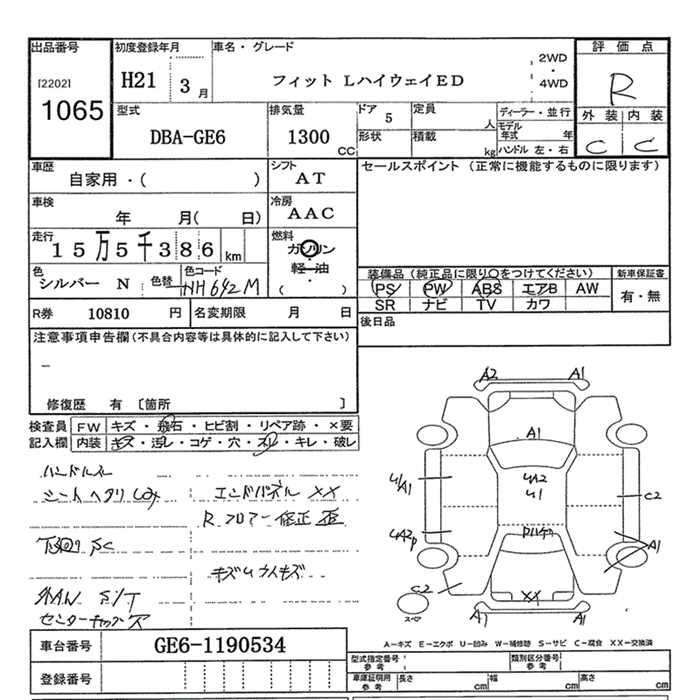 出品番号
[2202]
1065
初度登録年月
H21 3 月
車名・グレード
フィット Lハイウェイ ED
2WD
・
4WD
評価点
R
外装 内装
C C
型式
DBA-GE6
排気量
1300 CC
ドア 5
形状
定員 人
積載 kg
ディーラー・並行
モデル年式 年
ハンドル 左・右
車歴
自家用・( )
シフト
AT
セールスポイント (正常に機能するものに限ります)
車検
年 月( 日)
冷房
AAC
走行
15万5千386 km
燃料
ガソリン
軽・油
( )
色
シルバー N
色替
色コード
NH642M
装備品(純正品に限り○をつけてください)
PS PW ABS エアB AW
SR ナビ TV カワ
新車保証書
有・無
R券 10810 円
名変期限 月 日
後日品
注意事項申告欄(不具合内容等は具体的に記入して下さい)
–
修復歴 有 〔箇所 〕
検査員記入欄
FW キズ・飛石・ヒビ割・リペア跡・×要
内装 キズ・汚レ・コゲ・穴・スレ・キレ・破レ
ハンドルスレ
シートヘタリ しみ
エンドパネル XX
R.フロアー修正
SC
キズ
S/T
センターキャップ欠
A2 A1
A1
U/A1
UA2
U1
C2
UA2P
A1
C2
XX
スペア
A1 A1
A-キズ E-エクボ U-凹み W-補修跡 S-サビ C-腐食 XX-交換済
車台番号 GE6-1190534
登録番号
型式指定番号 参考
類別区分番号 参考
車庫証明用 参考
長さ cm
幅 cm
高さ cm